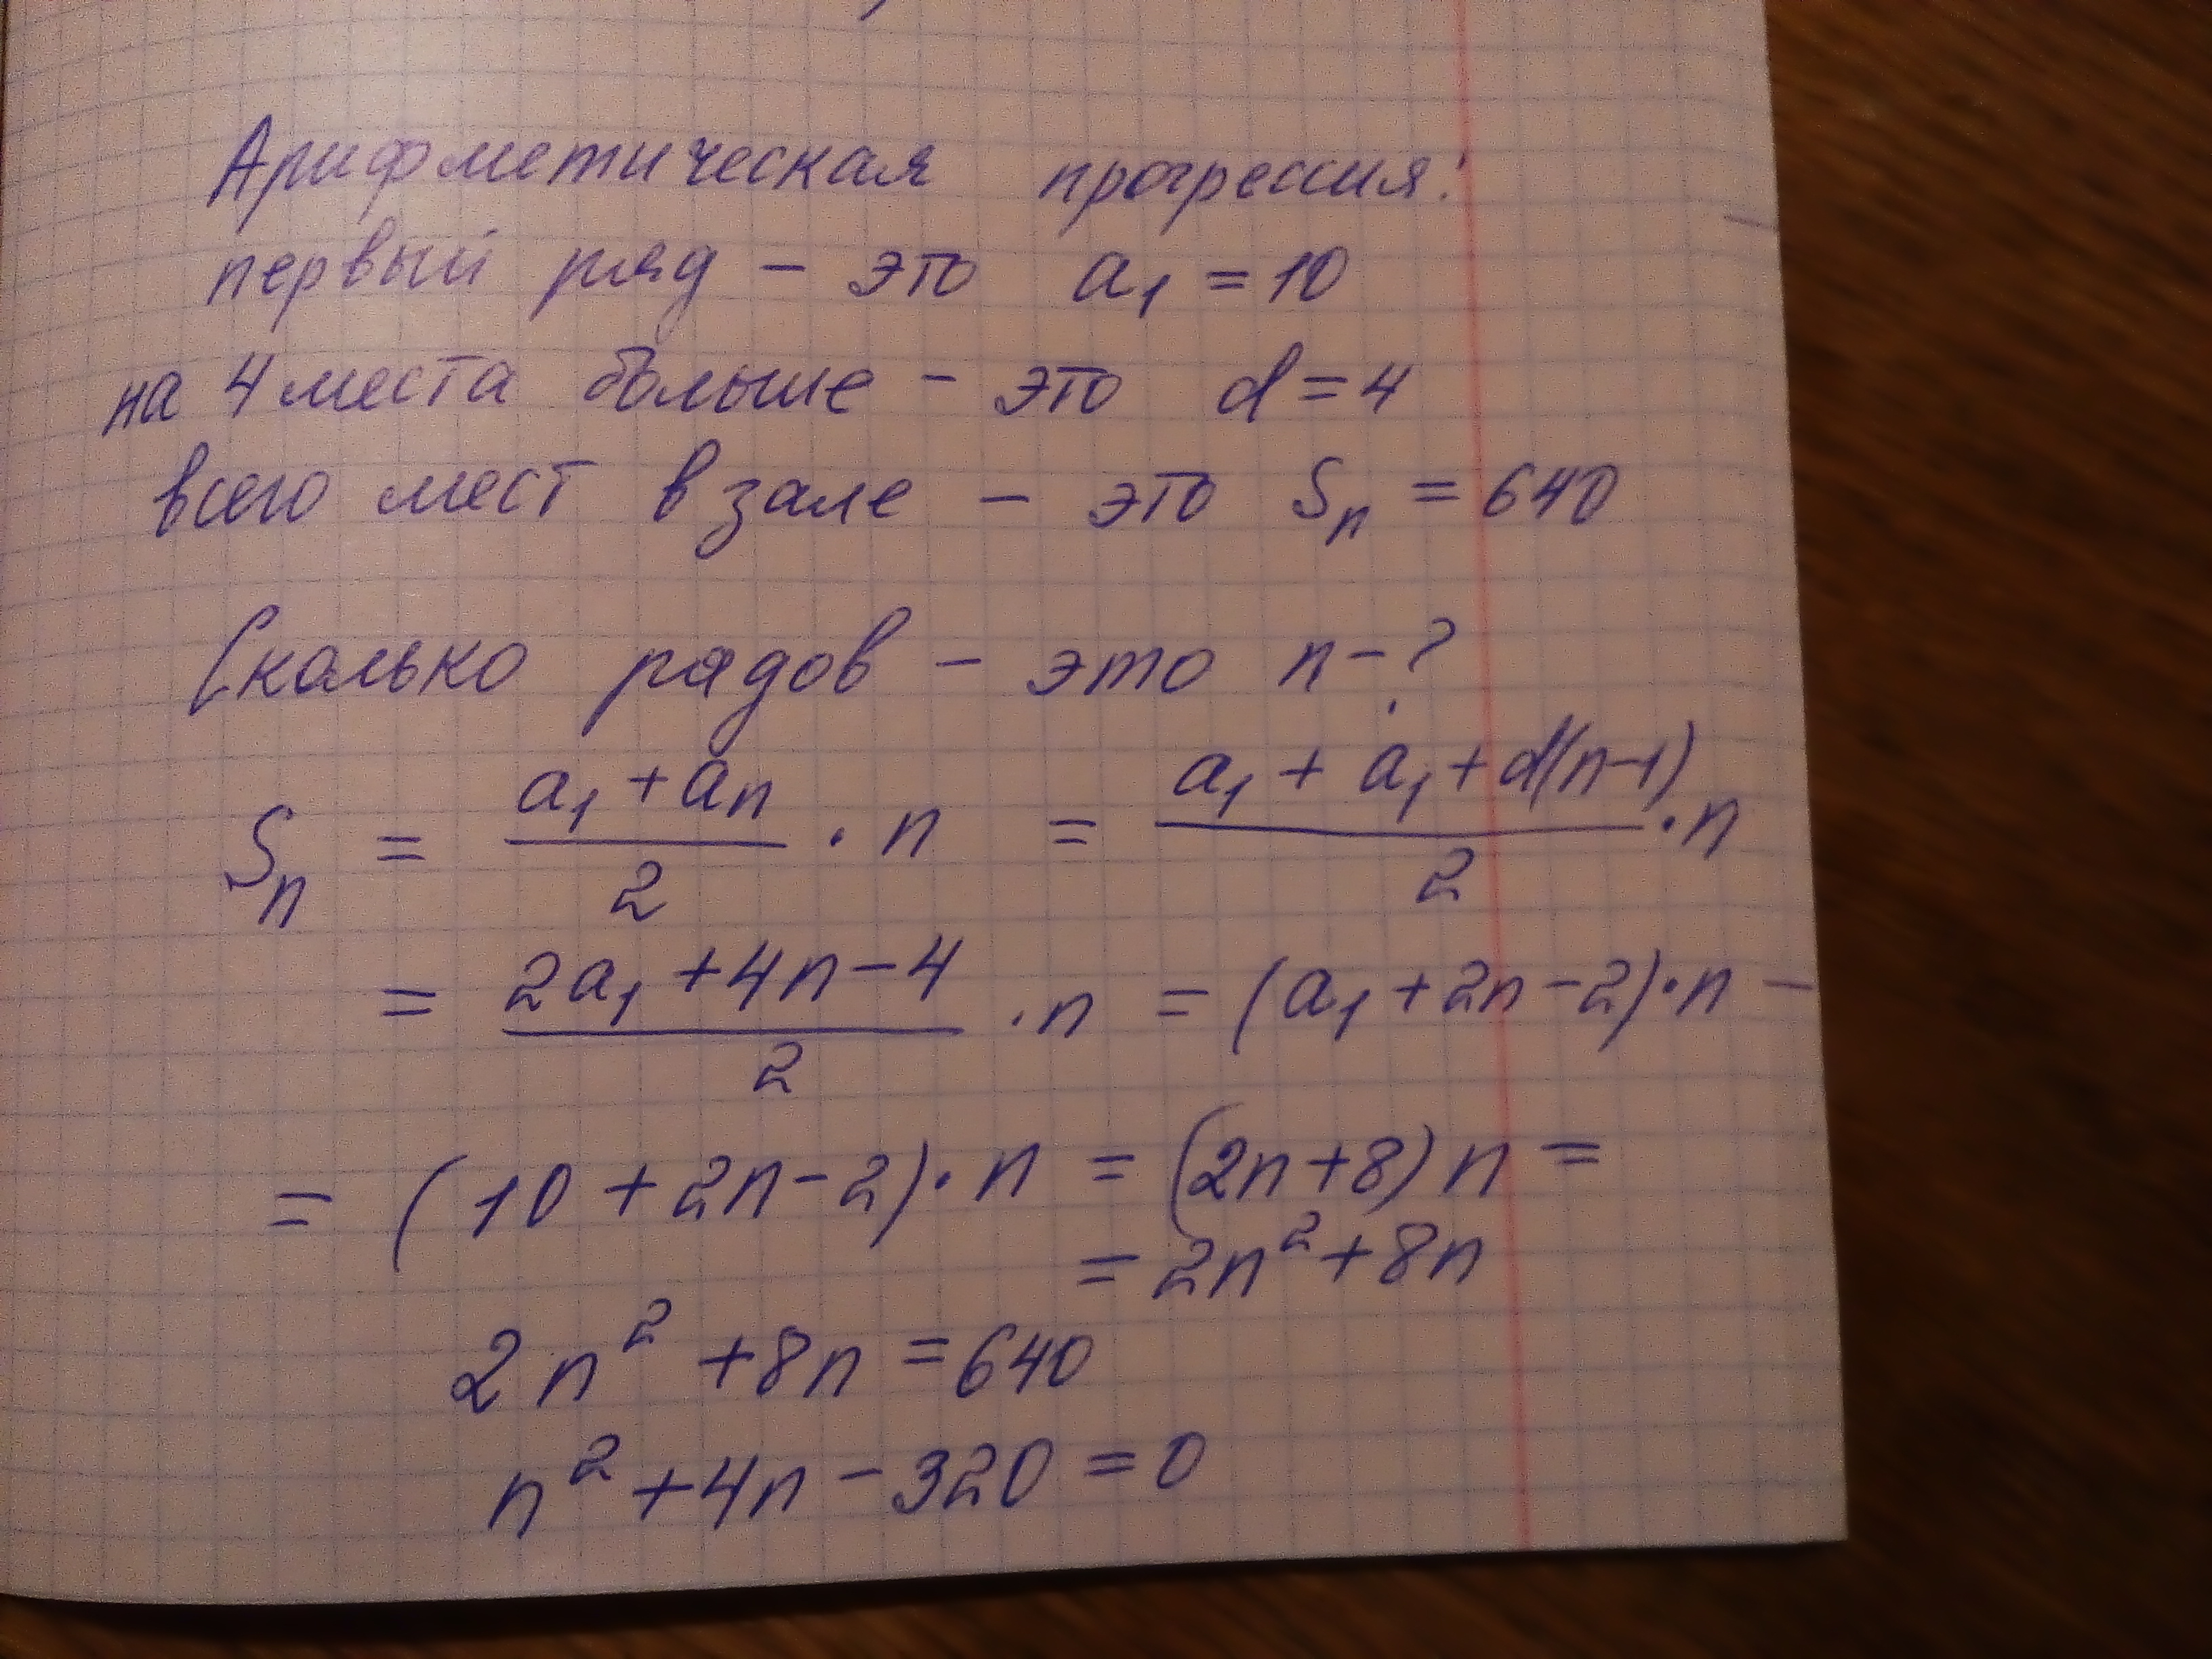 Арифметическая прогрессия:
первый ряд – это a₁ = 10
на 4 места больше – это d = 4
всего мест в зале – это Sₙ = 640
Сколько рядов – это n – ?
Sₙ = (a₁ + aₙ)/2 · n = (a₁ + a₁ + d(n–1))/2 · n
= (2a₁ + 4n – 4)/2 · n = (a₁ + 2n – 2) · n –
= (10 + 2n – 2) · n = (2n + 8) n =
= 2n² + 8n
2n² + 8n = 640
n² + 4n – 320 = 0